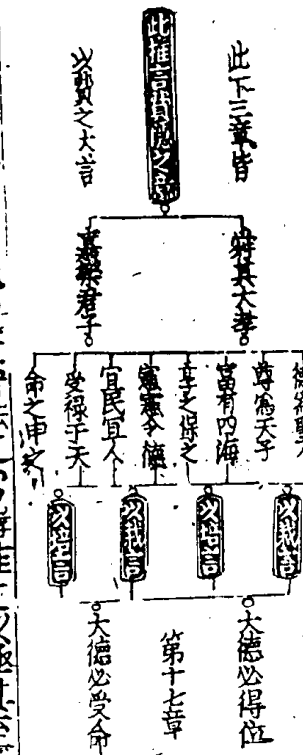 此下三章皆
此推言費隱之意
以費之大言
舜其大孝
嘉樂君子
德為聖人
尊為天子
富有四海
享之保之
憲憲令德
宜民宜人
受祿于天
命之申之
以栽言
以培言
以栽言
以培言
大德必得位
第十七章
大德必受命